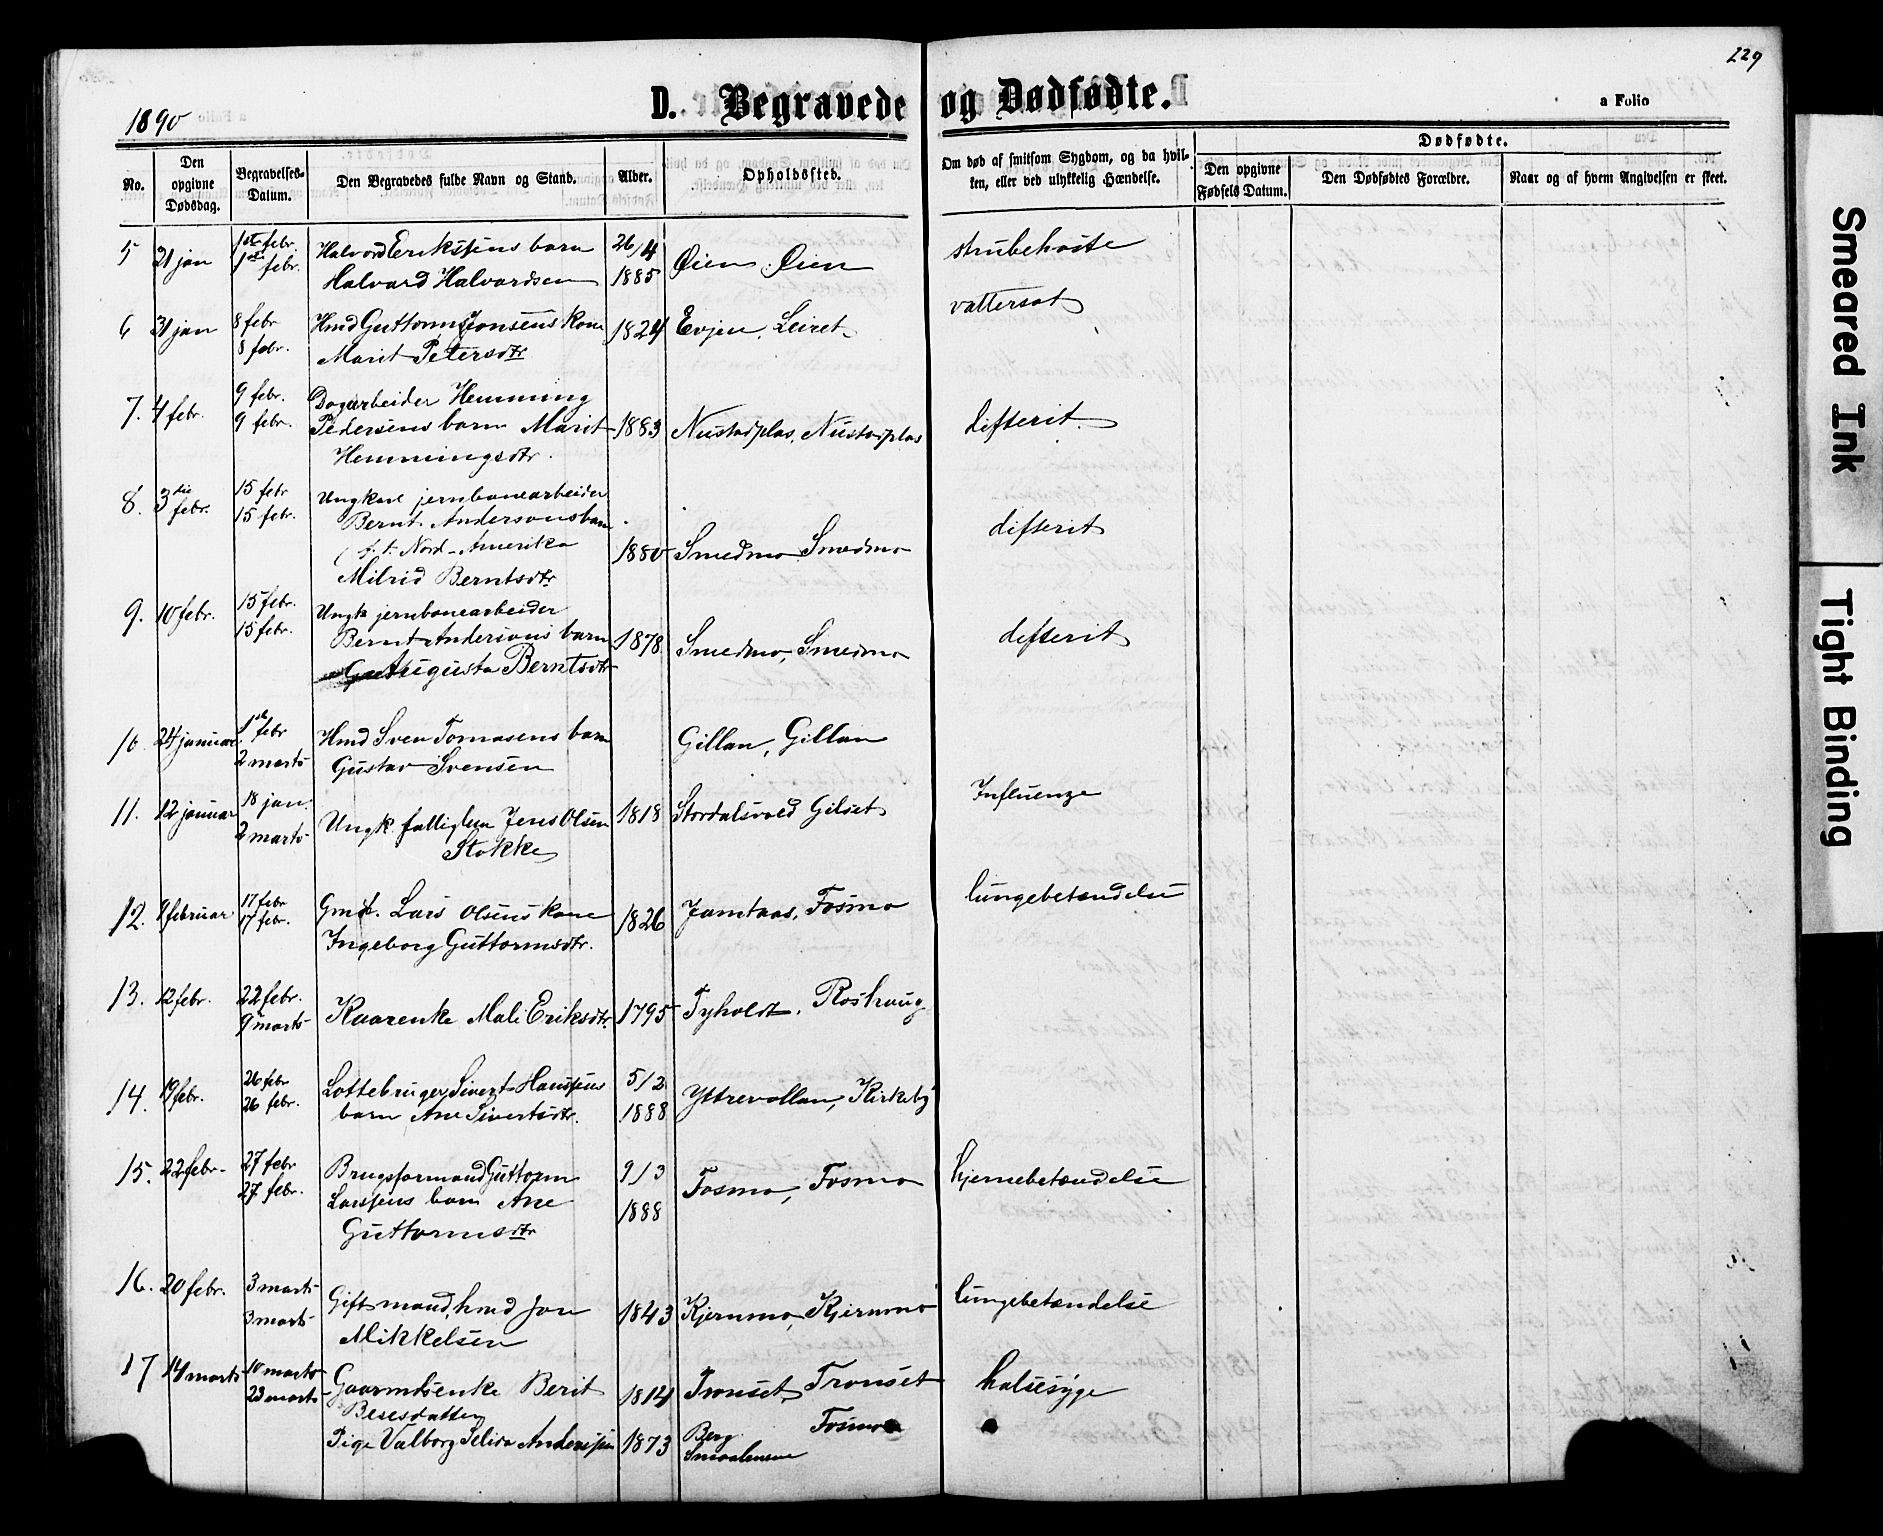 229
1890
D. Begravede og Dødfødte.
a Folio
No.
Den opgivne Dødsdag.
Begravelses-Datum.
Den Begravedes fulde Navn og Stand.
Alder.
Opholdssted.
Om død af smitsom Sygdom, og da hvil-
ken, eller ved ulykkelig Hændelse.
Dødfødte.
Den opgivne Fødsels Datum.
Den Dødfødtes Forældre.
Naar og af hvem Angivelsen er skeet.
5 31 jan 1ste febr. Halvord Erikssens barn 26/4 strubehoste
1ste febr. Halvard Halvardsen 1885 Øien Øien
6 31 jan 8 febr Hmd Guttorm Jonsens kone 1824 Evjen, Leiret vattersot
8 febr. Marit Petersdtr
7. 4 febr. 9 febr. Dagarbeider Hemming
9 febr. Pedersens barn Marit 1883 Nustadplas, Nustadplas difterit
Hemmingsdtr.
8. 3die febr. 15 febr Ungkarl jernbanearbeider
15 febr. Bernt Andersons barn difterit
f. t. Nord-Amerika 1880 Smedmo Smedmo
Milrid Berntsdtr
9. 10 febr. 15 febr. Ungk jernbanearbeider
15 febr. Bernt Andersons barn 1878 Smedmo, Smedmo difterit
Augusta Berntsdtr
10. 24 januar 1ste febr Hmd Sven Tomasens barn Gillan, Gillan
2 marts Gustav Svensen
11. 12 januar 18 jan. Ungk. fattiglem Jens Olsen 1818 Stordalsvold Gilset Influenze
2 marts Stokke
12. 9 februar 17 febr Gmd. Lars Olsens kone 1826 Jamtaas, Fosmo lungebetændelse
17 febr. Ingeborg Guttormsdtr.
13. 12 febr. 22 febr. Kaarenke Mali Eriksdtr. 1795 Tyholdt, Roshaug
9 marts
14. 19 febr. 26 febr Lottebruger Sivert Hanssens 5/2 Yttrevollan, Kirkeby
26 febr. barn Ane Sivertsdtr. 1888
15. 22 febr. 27 febr Brugsformand Guttorm 9/3 Fosmo, Fosmo hjernebetændelse
27 febr. Larssens barn Ane 1888
Guttormsdtr
16. 20 febr. 3 marts Gift mand, hmd Jon 1843 Kjernmo, Kjernmo lungebetændelse
3 marts Mikkelsen
17 14 marts 18 marts Gaarmdsenke Berit 1814 Tronset, Tronset halsesyge
23 marts Besesdatter
Pige Valborg Selida Anderssen 1873 Berg Smaalenene Fosmo
Smeared Ink
Tight Binding